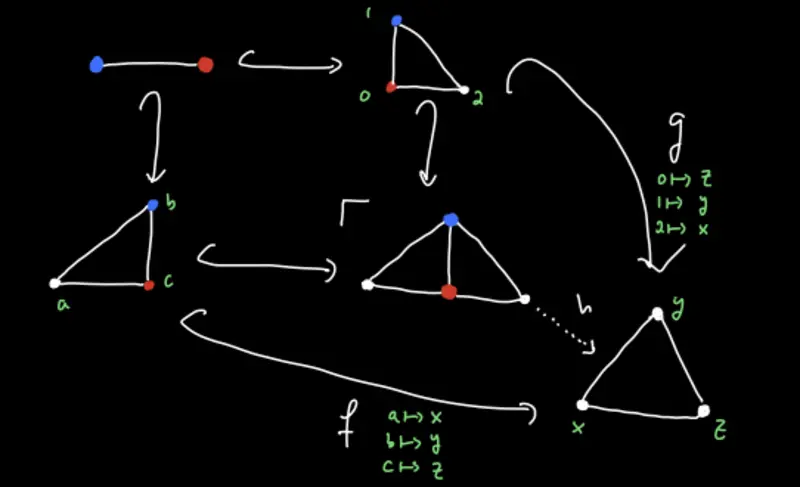 1
0
2
g
0 ↦ z
1 ↦ y
2 ↦ x
b
a
c
h
y
x
z
f
a ↦ x
b ↦ y
c ↦ z